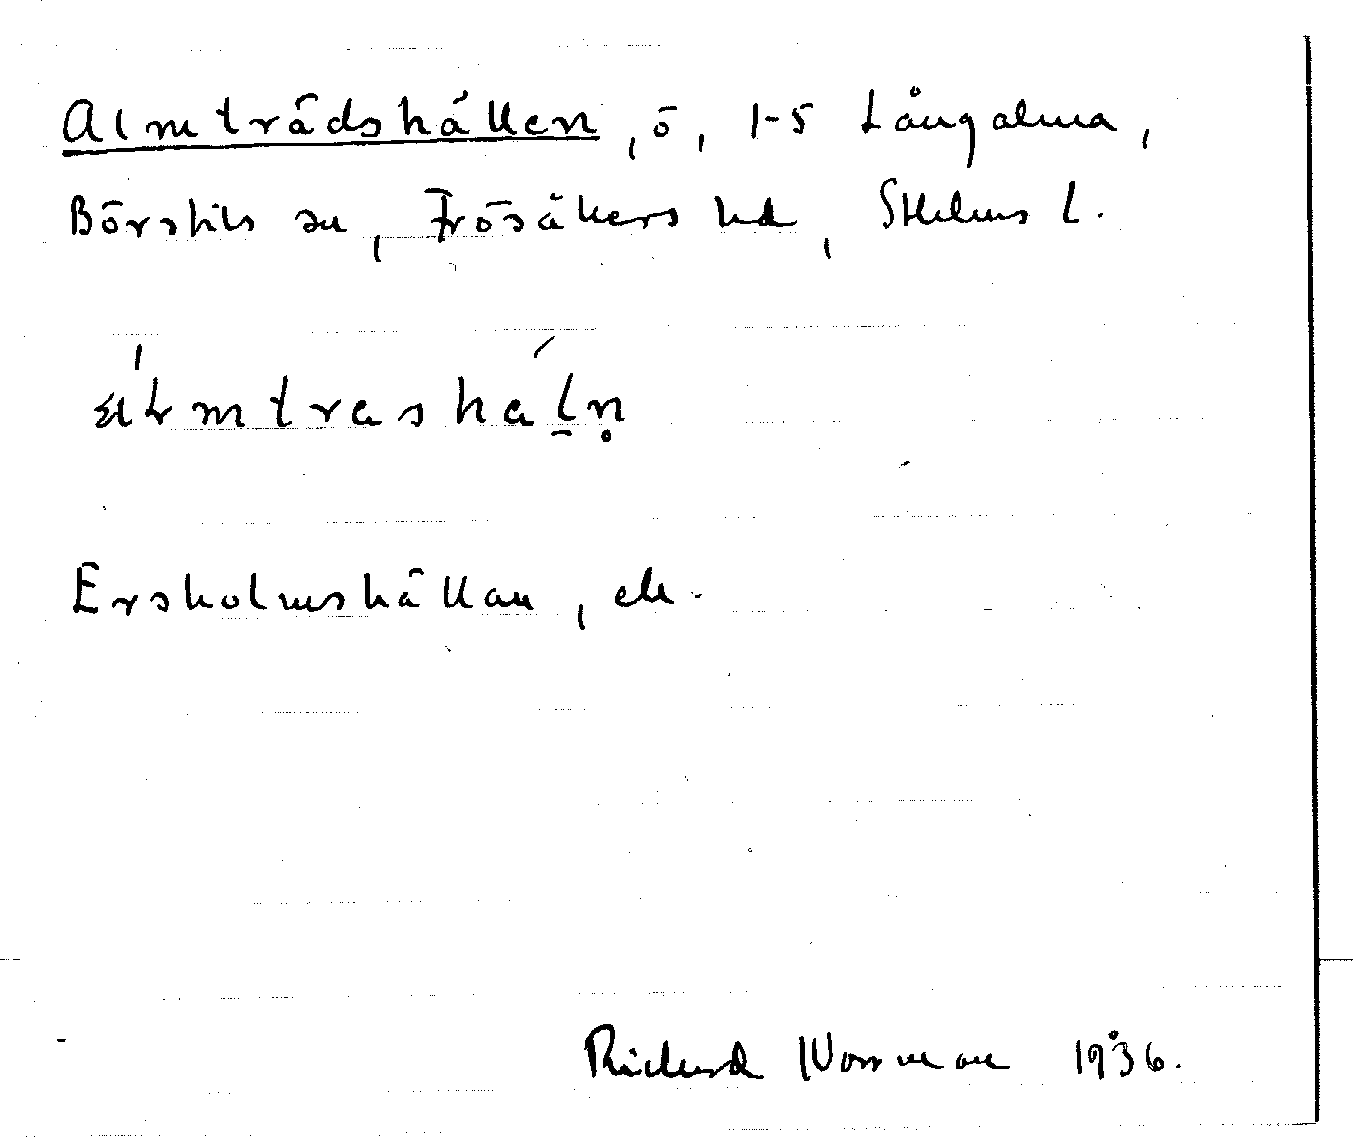 Almträdshällen, ö, 1-5 Långalma,
Börstils sn, Frösåkers hd, Sthlms l.
álmtrashál̠n̥
Ersholmshällan, ek.
Rickard Norrman 1936.